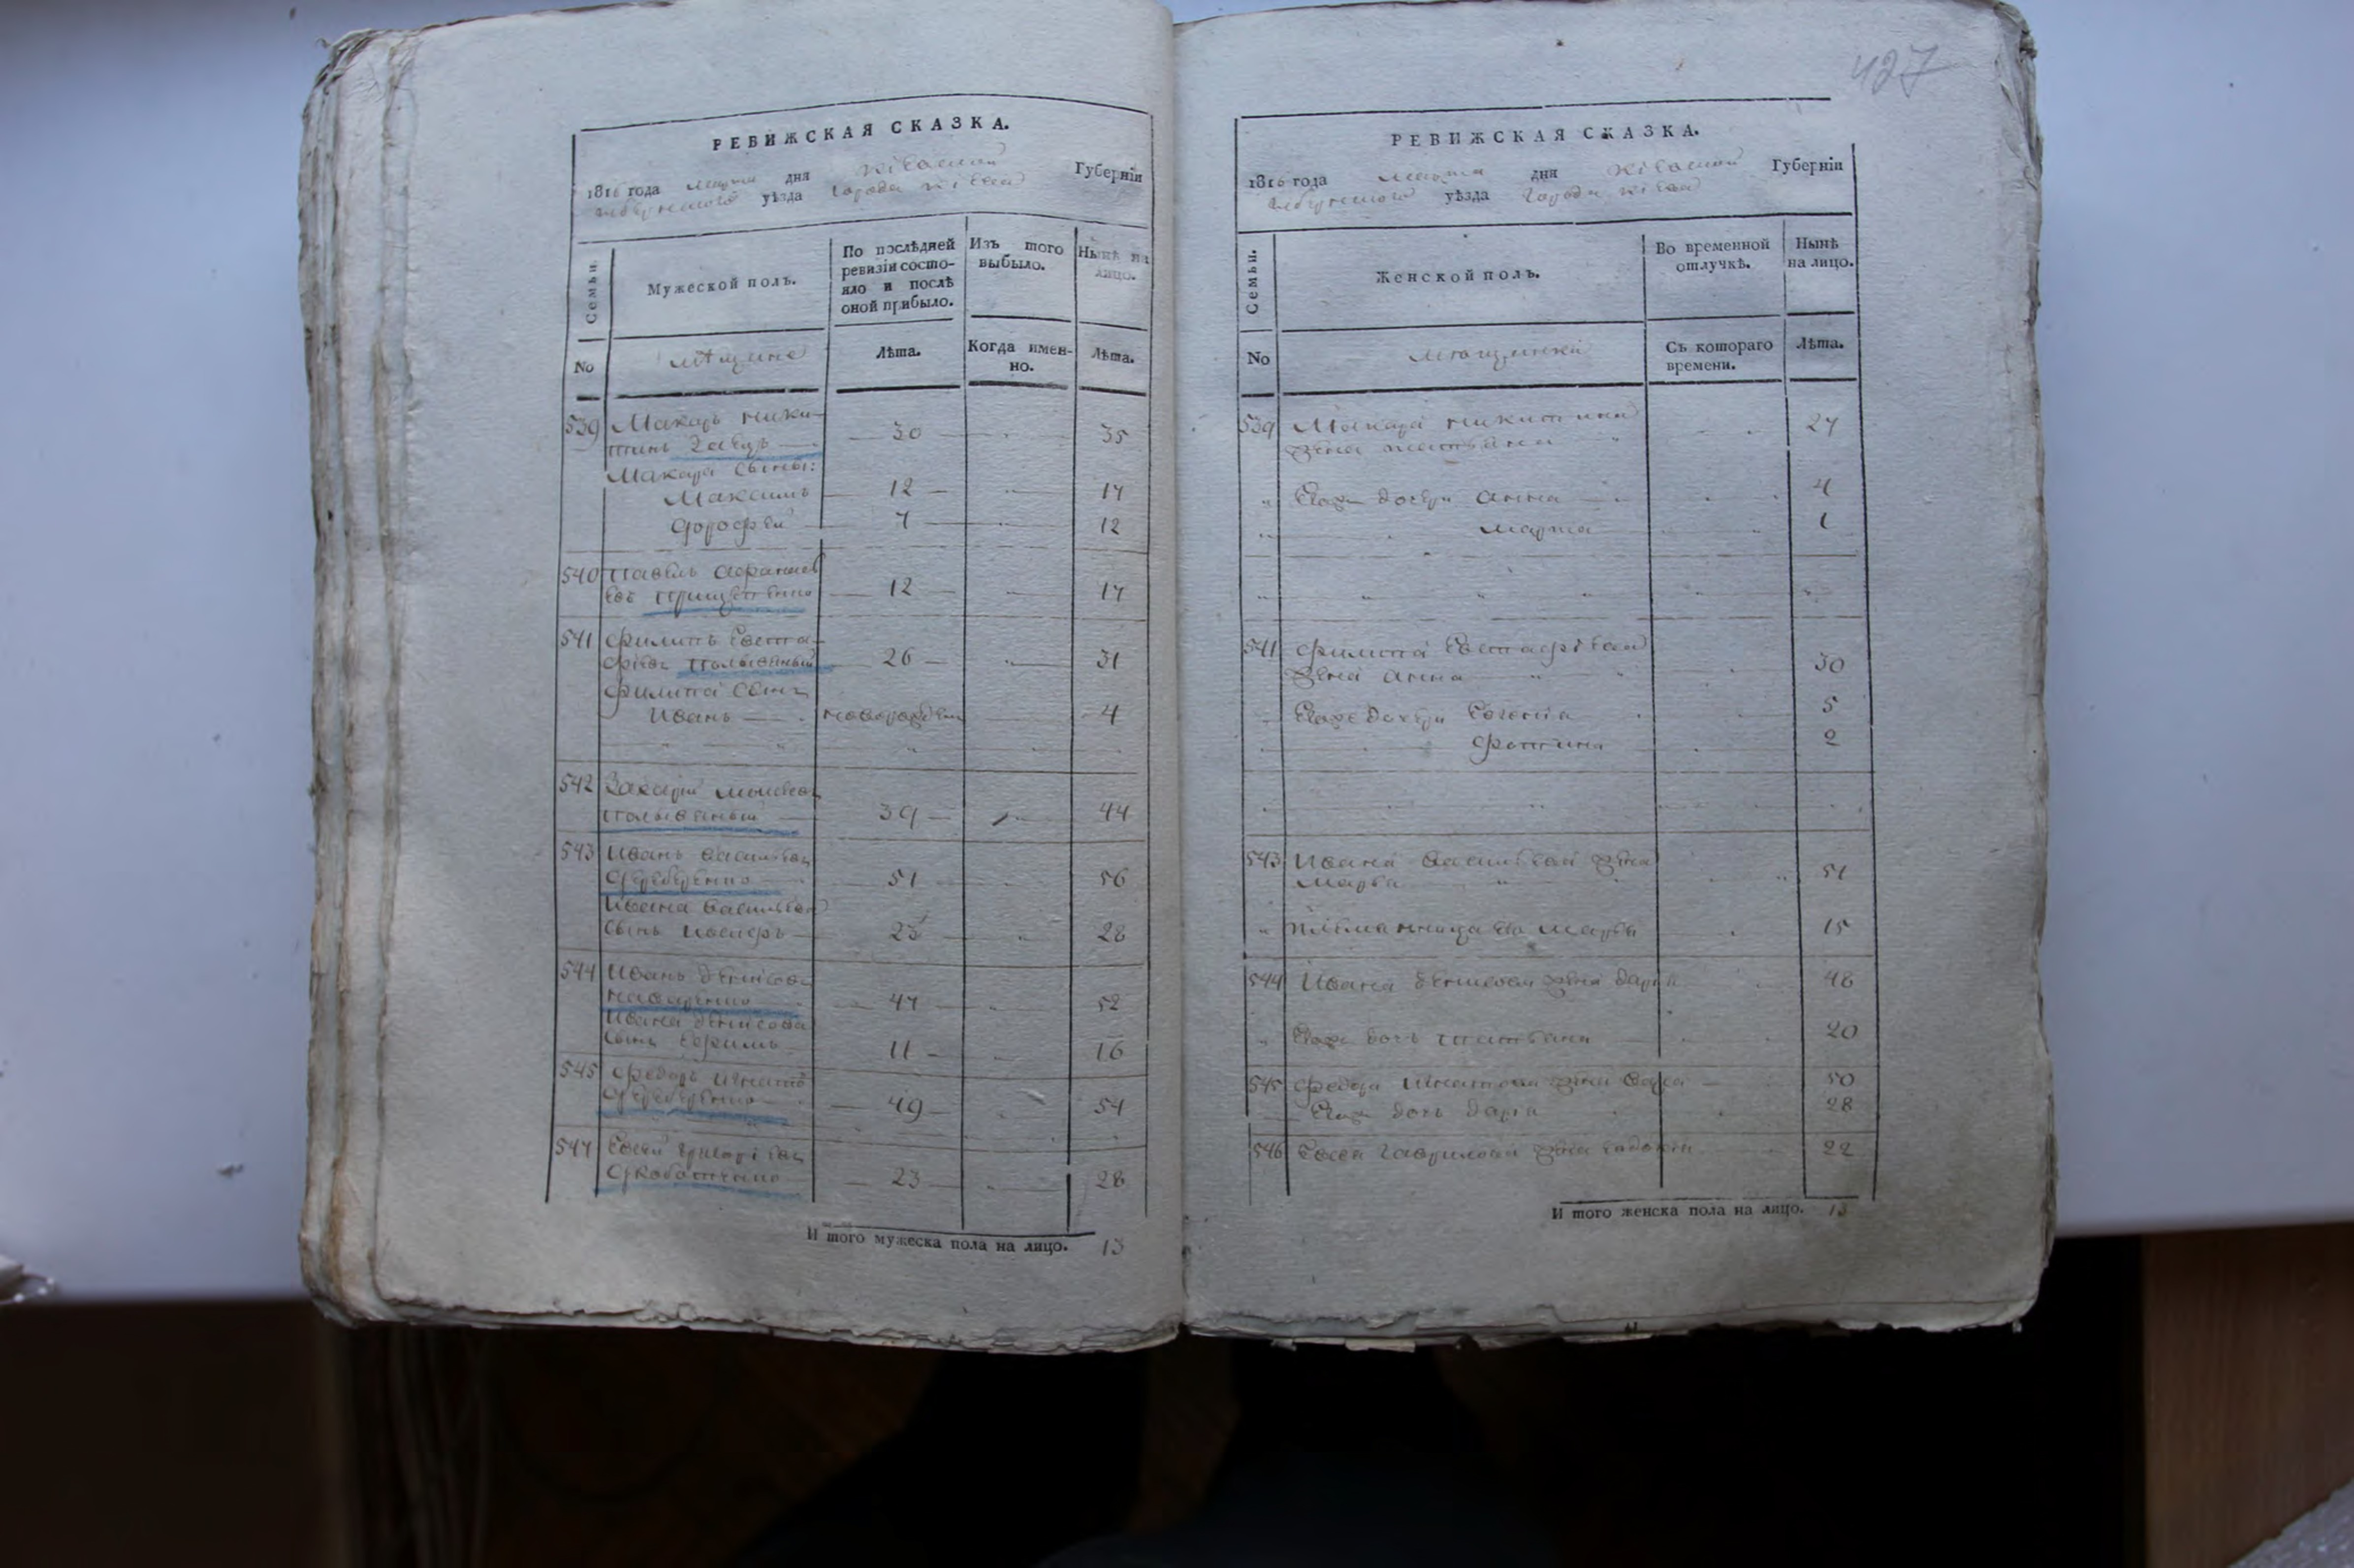 РЕВИЖСКАЯ СКАЗКА.
1816 года марта дня Кіевской Губерніи
уѣзда города Кіева
Семьи.
Мужеской полъ.
По послѣдней ревизіи состояло и послѣ оной прибыло.
Изъ того выбыло.
Нынѣ на лицо.
No
мѣщане
Лѣта.
Когда именно.
Лѣта.
539 Макаръ Ники-
тинъ 30 35
Макара сыны:
Максимъ 12 17
Дорофей 7 12
540 Павелъ Афанасі
евъ 12 17
541 Филипъ Евста-
фіевъ 26 31
Филипа сынъ
Иванъ новорожден 4
542 Захарій Моисеевъ
39 44
543 Иванъ Васильевъ
Серебренико 51 56
Ивана Васильева
сынъ 23 28
544 Иванъ Денисовъ
47 52
Ивана Денисова
сынъ Ефимъ 11 16
545 Федоръ Игнатовъ
Серебренико 49 54
547 Евсей Григоріевъ
23 28
И того мужеска пола на лицо. 13
427
РЕВИЖСКАЯ СКАЗКА.
1816 года марта дня Кіевской Губерніи
уѣзда города Кіева
Семьи.
Женской полъ.
Во временной отлучкѣ.
Нынѣ на лицо.
No
мѣщанки
Съ котораго времени.
Лѣта.
539 Макара Никитина
жена Татьяна 27
Егоже дочери Анна 4
Марта 1
541 Филипа Евстафіева
жена Анна 30
Егоже дочери Евгенія 5
Фотина 2
543 Ивана Васильева жена
Марѳа 51
племянница его Марѳа 15
544 Ивана Денисова жена Дарья 48
Егоже дочь Татьяна 20
545 Федора Игнатова жена 50
Егоже дочь Дарья 28
546 Евсея Гаврилова жена Евдокія 22
И того женска пола на лицо. 13